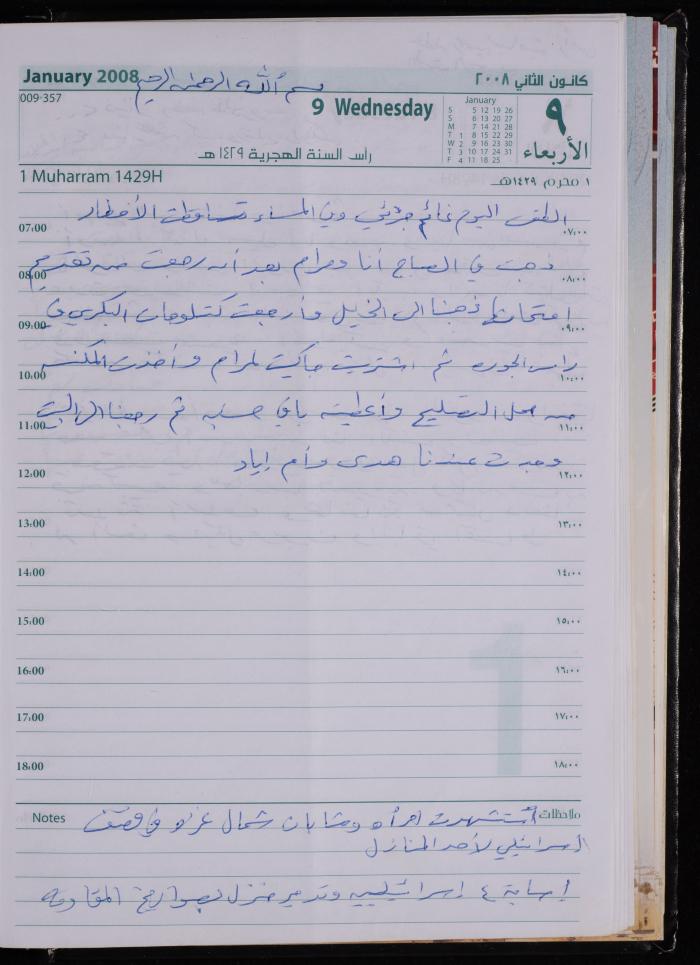 January 2008 بسم الله الرحمن الرحيم كانون الثاني ٢٠٠٨
009-357
9 Wednesday
January
S 5 12 19 26
S 6 13 20 27
M 7 14 21 28
T 1 8 15 22 29
W 2 9 16 23 30
T 3 10 17 24 31
F 4 11 18 25
٩
الأربعاء
رأس السنة الهجرية ١٤٢٩ هـ
1 Muharram 1429H ١ محرم ١٤٢٩هـ
الطقس اليوم غائم جزئي وفي المساء تساقطت الأمطار
07:00 ٠٧:٠٠
ذهبت في الصباح أنا ومرام بعد أن رجعت من تقديم
08:00 ٠٨:٠٠
امتحانها ذهبنا الى الخليل وأرجعت البكري في
09:00 ٠٩:٠٠
راس الجوره ثم اشتريت جاكيت لمرام وأخذت المكنسه
10:00 ١٠:٠٠
من محل التصليح وأعطيته باقي حسابه ثم رجعنا الى البيت
11:00 ١١:٠٠
وجدت عندنا هدى وأم إياد
12:00 ١٢:٠٠
13:00 ١٣:٠٠
14:00 ١٤:٠٠
15:00 ١٥:٠٠
16:00 ١٦:٠٠
17:00 ١٧:٠٠
18:00 ١٨:٠٠
1
Notes ملاحظات
أستشهدت امرأه وشابان شمال غزه في قصف
إسرائيلي لأحد المنازل
إصابة ٤ إسرائيليين وتدمير منزل بصواريخ المقاومه